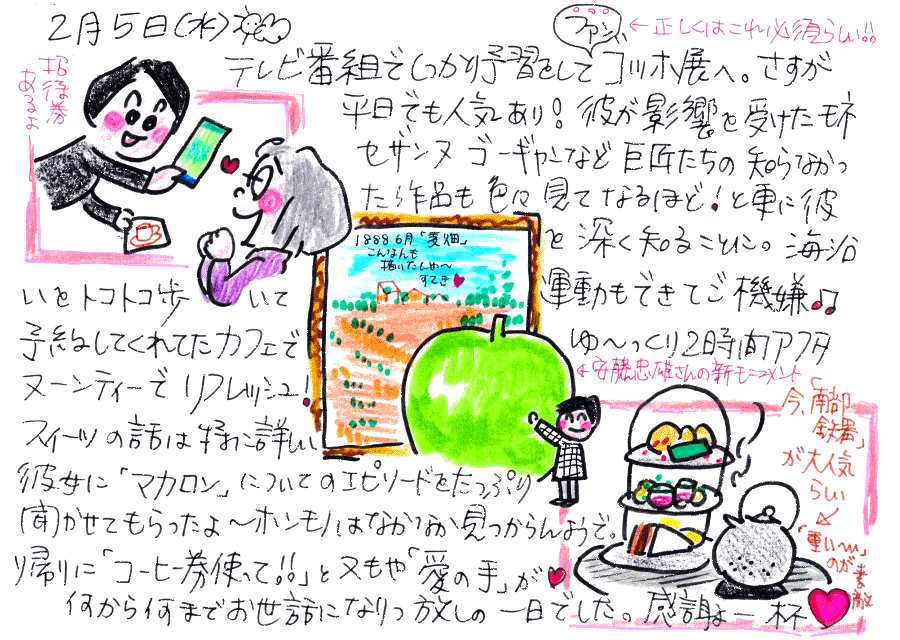 2月5日(水)
ファン
←正しくはこれ必須らしい!!
招待券
あるよ
テレビ番組でしっかり予習をしてゴッホ展へ。さすが
平日でも人気あり!彼が影響を受けたモネ
セザンヌ ゴーギャンなど巨匠たちの知らなかっ
た作品も色々見てなるほど!と更に彼
を深く知ることに。海沿
いをトコトコ歩いて
運動もできてご機嫌♫
1888 6月「麦畑」
こんなんも
描いたんや〜
すてき♥
予約してくれてたカフェで
ゆ〜っくり2時間アフタ
ヌーンティーでリフレッシュ!
←安藤忠雄さんの新モニュメント
スイーツの話は特に詳しい
彼女に「マカロン」についてのエピソードをたっぷり
聞かせてもらったよ〜ホンモノはなかなか見つからんようで。
帰りに「コーヒー券使って!!」と又もや「愛の手」が♥
何から何までお世話になりっ放しの一日でした。感謝よー杯♥
今、「南部
鉄器」
が大人気
らしい
「重い〜」
のが
素敵